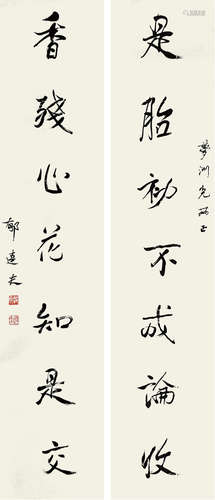 是胎初不成論收
夢洲兄 正
香殘心花知是交
郁達夫